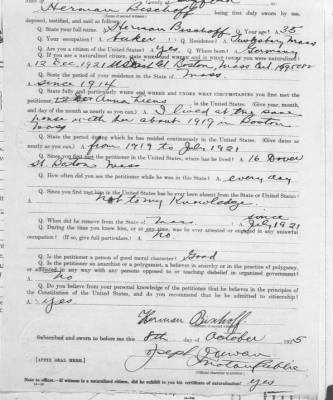 Herman Bischoff being first duly sworn by me,
(Name of second witness.)
deposed, testified, and said as follows:
Q. State your full name. Herman Bischoff Q. Your age? 35
Q. Your occupation? A. Baker Q. Residence? Mass
Q. Are you a citizen of the United States? A. yes Q. Where born? Germany
Q. If you are a naturalized citizen, state WHEN and in what COURT you were naturalized?
12 Dec. 1921 Boston Mass
Q. State the period of your residence in the State of Mass.
since 1914
Q. State fully and particularly WHERE and UNDER WHAT CIRCUMSTANCES you first met the
petitioner, in the United States. (Give year, month,
and day of the month as nearly as you can.) A. I lived at the same
house with her about 1919 in Boston
Mass
Q. State the period during which he has resided continuously in the United States. (Give dates
as nearly as you can.) A. from 1919 to July 1921
Q. Since you first met the petitioner in the United States, where has he lived? A. 16 Dover
St Boston Mass
Q. How often did you see the petitioner while he was in this State? A. every day
Q. Since you first met him in the United States has he ever been absent from the State or United States?
A. not to my Knowledge.
Q. When did he remove from the State of Mass A. since July 1921
Q. During the time you knew him, or at any time, was he ever arrested or engaged in any unlawful
occupation? (If so, give full particulars.) A. no.
Q. Is the petitioner a person of good moral character? Good
Q. Is the petitioner an anarchist or a polygamist, a believer in anarchy or in the practice of polygamy,
or affiliated in any way with any persons opposed to or teaching disbelief in organized government?
A. no
Q. Do you believe from your personal knowledge of the petitioner that he believes in the principles
of the Constitution of the United States, and do you recommend that he be admitted to citizenship?
A. yes.
Herman Bischoff
Subscribed and sworn to before me this 8th day of October 1925
Joseph
Notary Public
[AFFIX SEAL HERE.]
Note to officer.—If witness is a naturalized citizen, did he exhibit to you his certificate of naturalization? yes